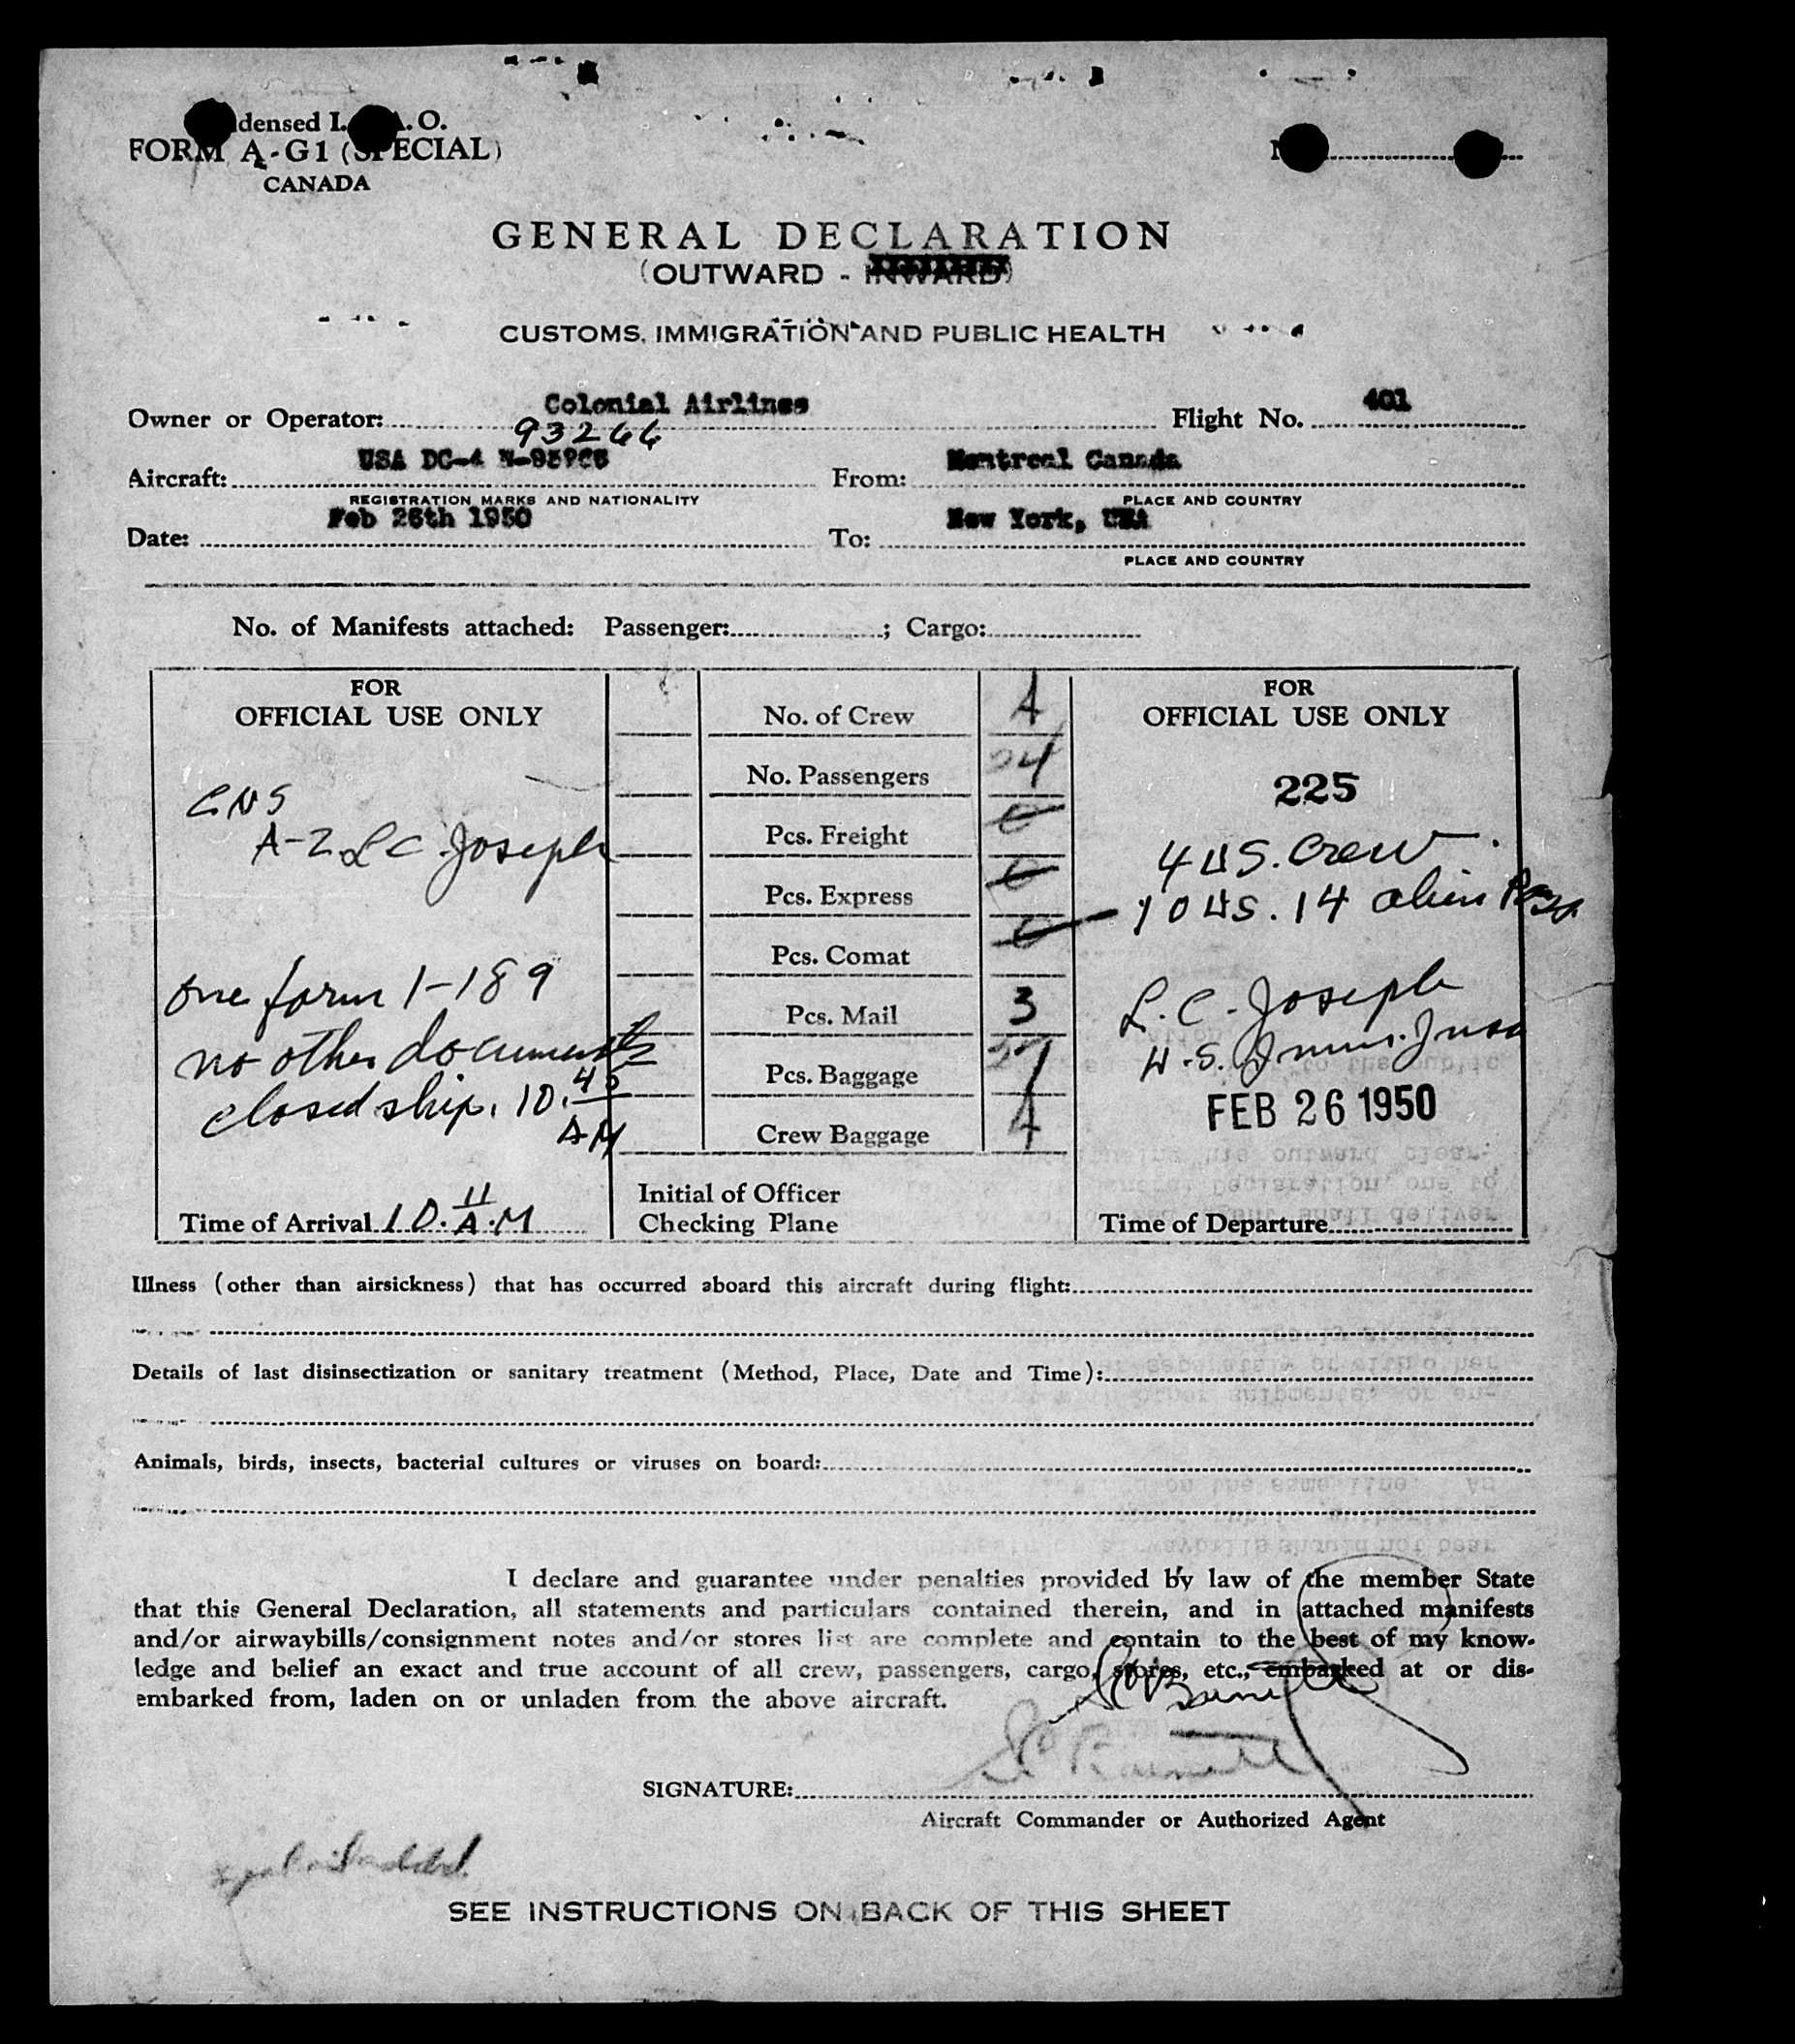 densed I. A.O.
FORM A-G1 (SPECIAL)
CANADA
GENERAL DECLARATION
(OUTWARD - INWARD)
CUSTOMS, IMMIGRATION AND PUBLIC HEALTH
Owner or Operator: Colonial Airlines Flight No. 401
93266
Aircraft: USA DC-4 From: Montreal Canada
REGISTRATION MARKS AND NATIONALITY PLACE AND COUNTRY
Date: Feb 26th 1950 To: New York, USA
PLACE AND COUNTRY
No. of Manifests attached: Passenger: ; Cargo:
FOR
OFFICIAL USE ONLY
CNS
A-2 L C. Joseph
one form 1-189
no other documents
closed ship. 10.45
AM
Time of Arrival 10.11 A.M
No. of Crew 4
No. Passengers 24
Pcs. Freight 0
Pcs. Express 0
Pcs. Comat 0
Pcs. Mail 3
Pcs. Baggage 27
Crew Baggage 4
Initial of Officer
Checking Plane
FOR
OFFICIAL USE ONLY
225
4 US. Crew
10 US. 14 alien Pass
L. C. Joseph
U.S. Imm. Insp
FEB 26 1950
Time of Departure
Illness (other than airsickness) that has occurred aboard this aircraft during flight:
Details of last disinsectization or sanitary treatment (Method, Place, Date and Time):
Animals, birds, insects, bacterial cultures or viruses on board:
I declare and guarantee under penalties provided by law of the member State
that this General Declaration, all statements and particulars contained therein, and in attached manifests
and/or airwaybills/consignment notes and/or stores list are complete and contain to the best of my know-
ledge and belief an exact and true account of all crew, passengers, cargo, stores, etc., embarked at or dis-
embarked from, laden on or unladen from the above aircraft.
SIGNATURE:
Aircraft Commander or Authorized Agent
SEE INSTRUCTIONS ON BACK OF THIS SHEET